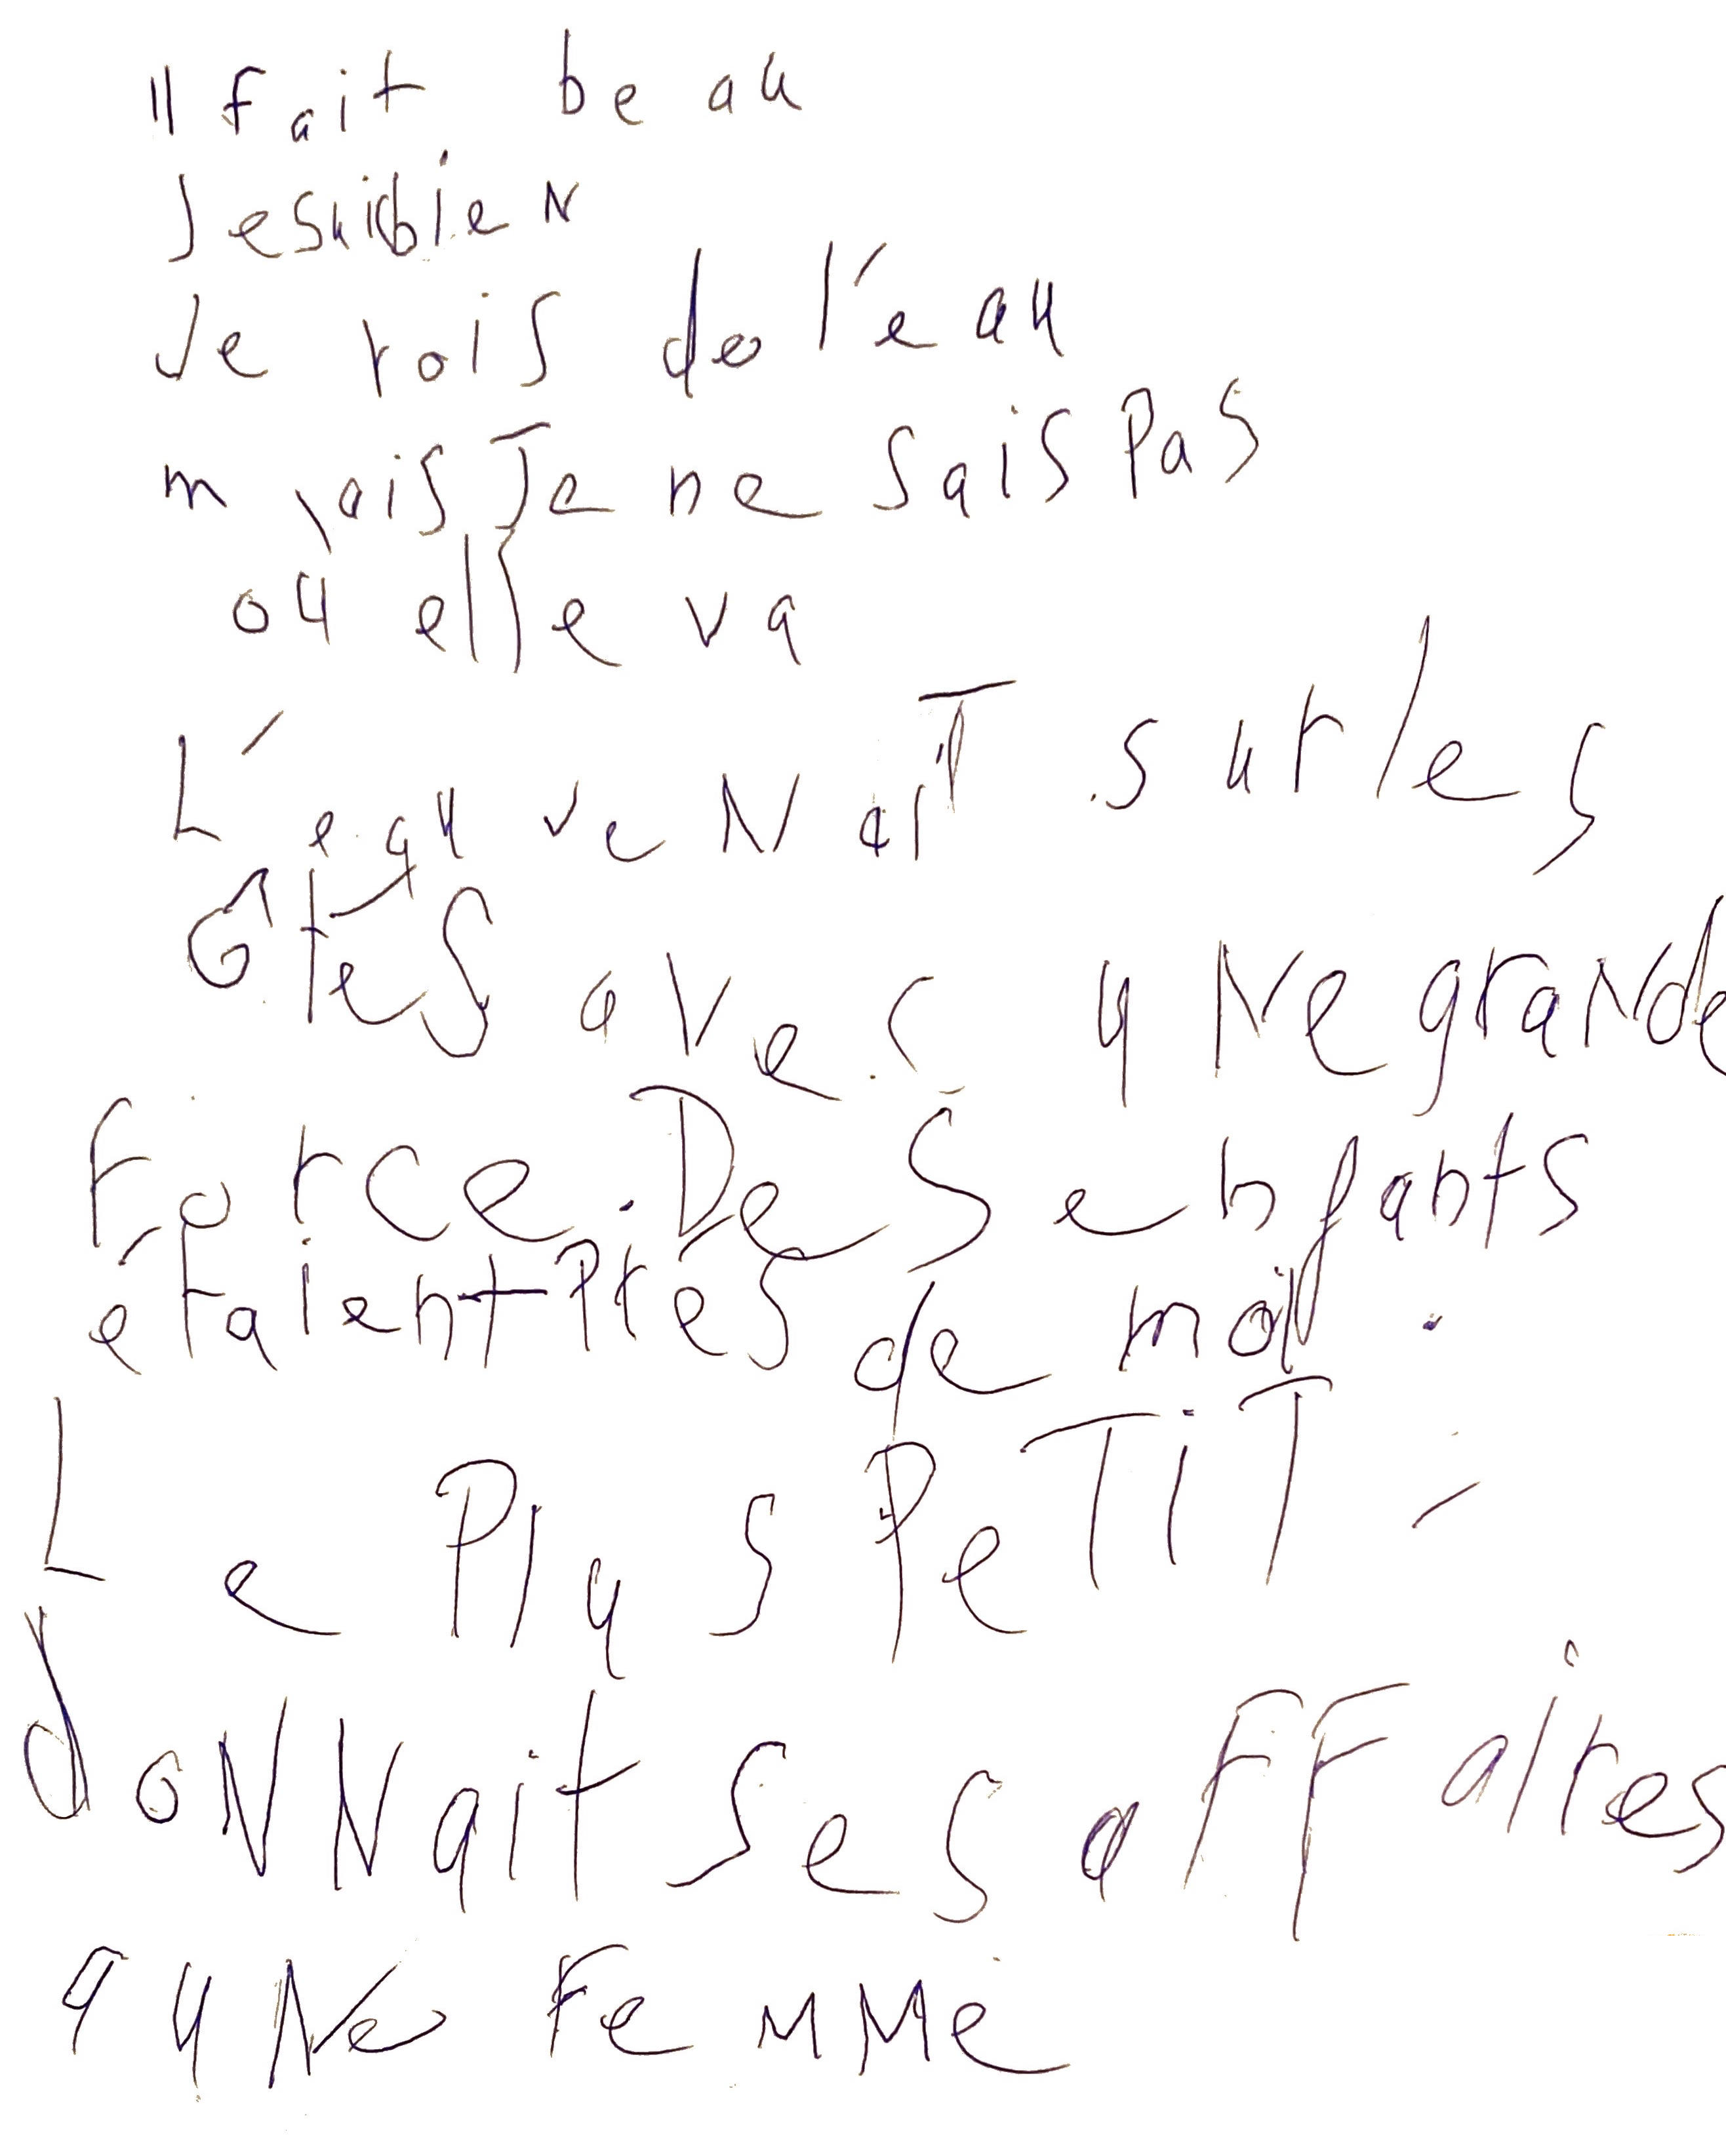 Il fait beau
Je suibien
Je vois de l'eau
mais Je ne sais pas
ou elle va
L'eau veNaiT sur les
Cotes avec uNe graNde
Force. Des enfants
étaient Pres de moi.
Le Plus PeTiT
doNNait ses aFFaires
a uNe FeMMe